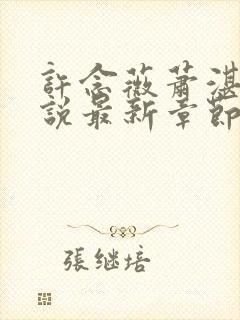 許念薇蕭湛
說最新章節
張继培